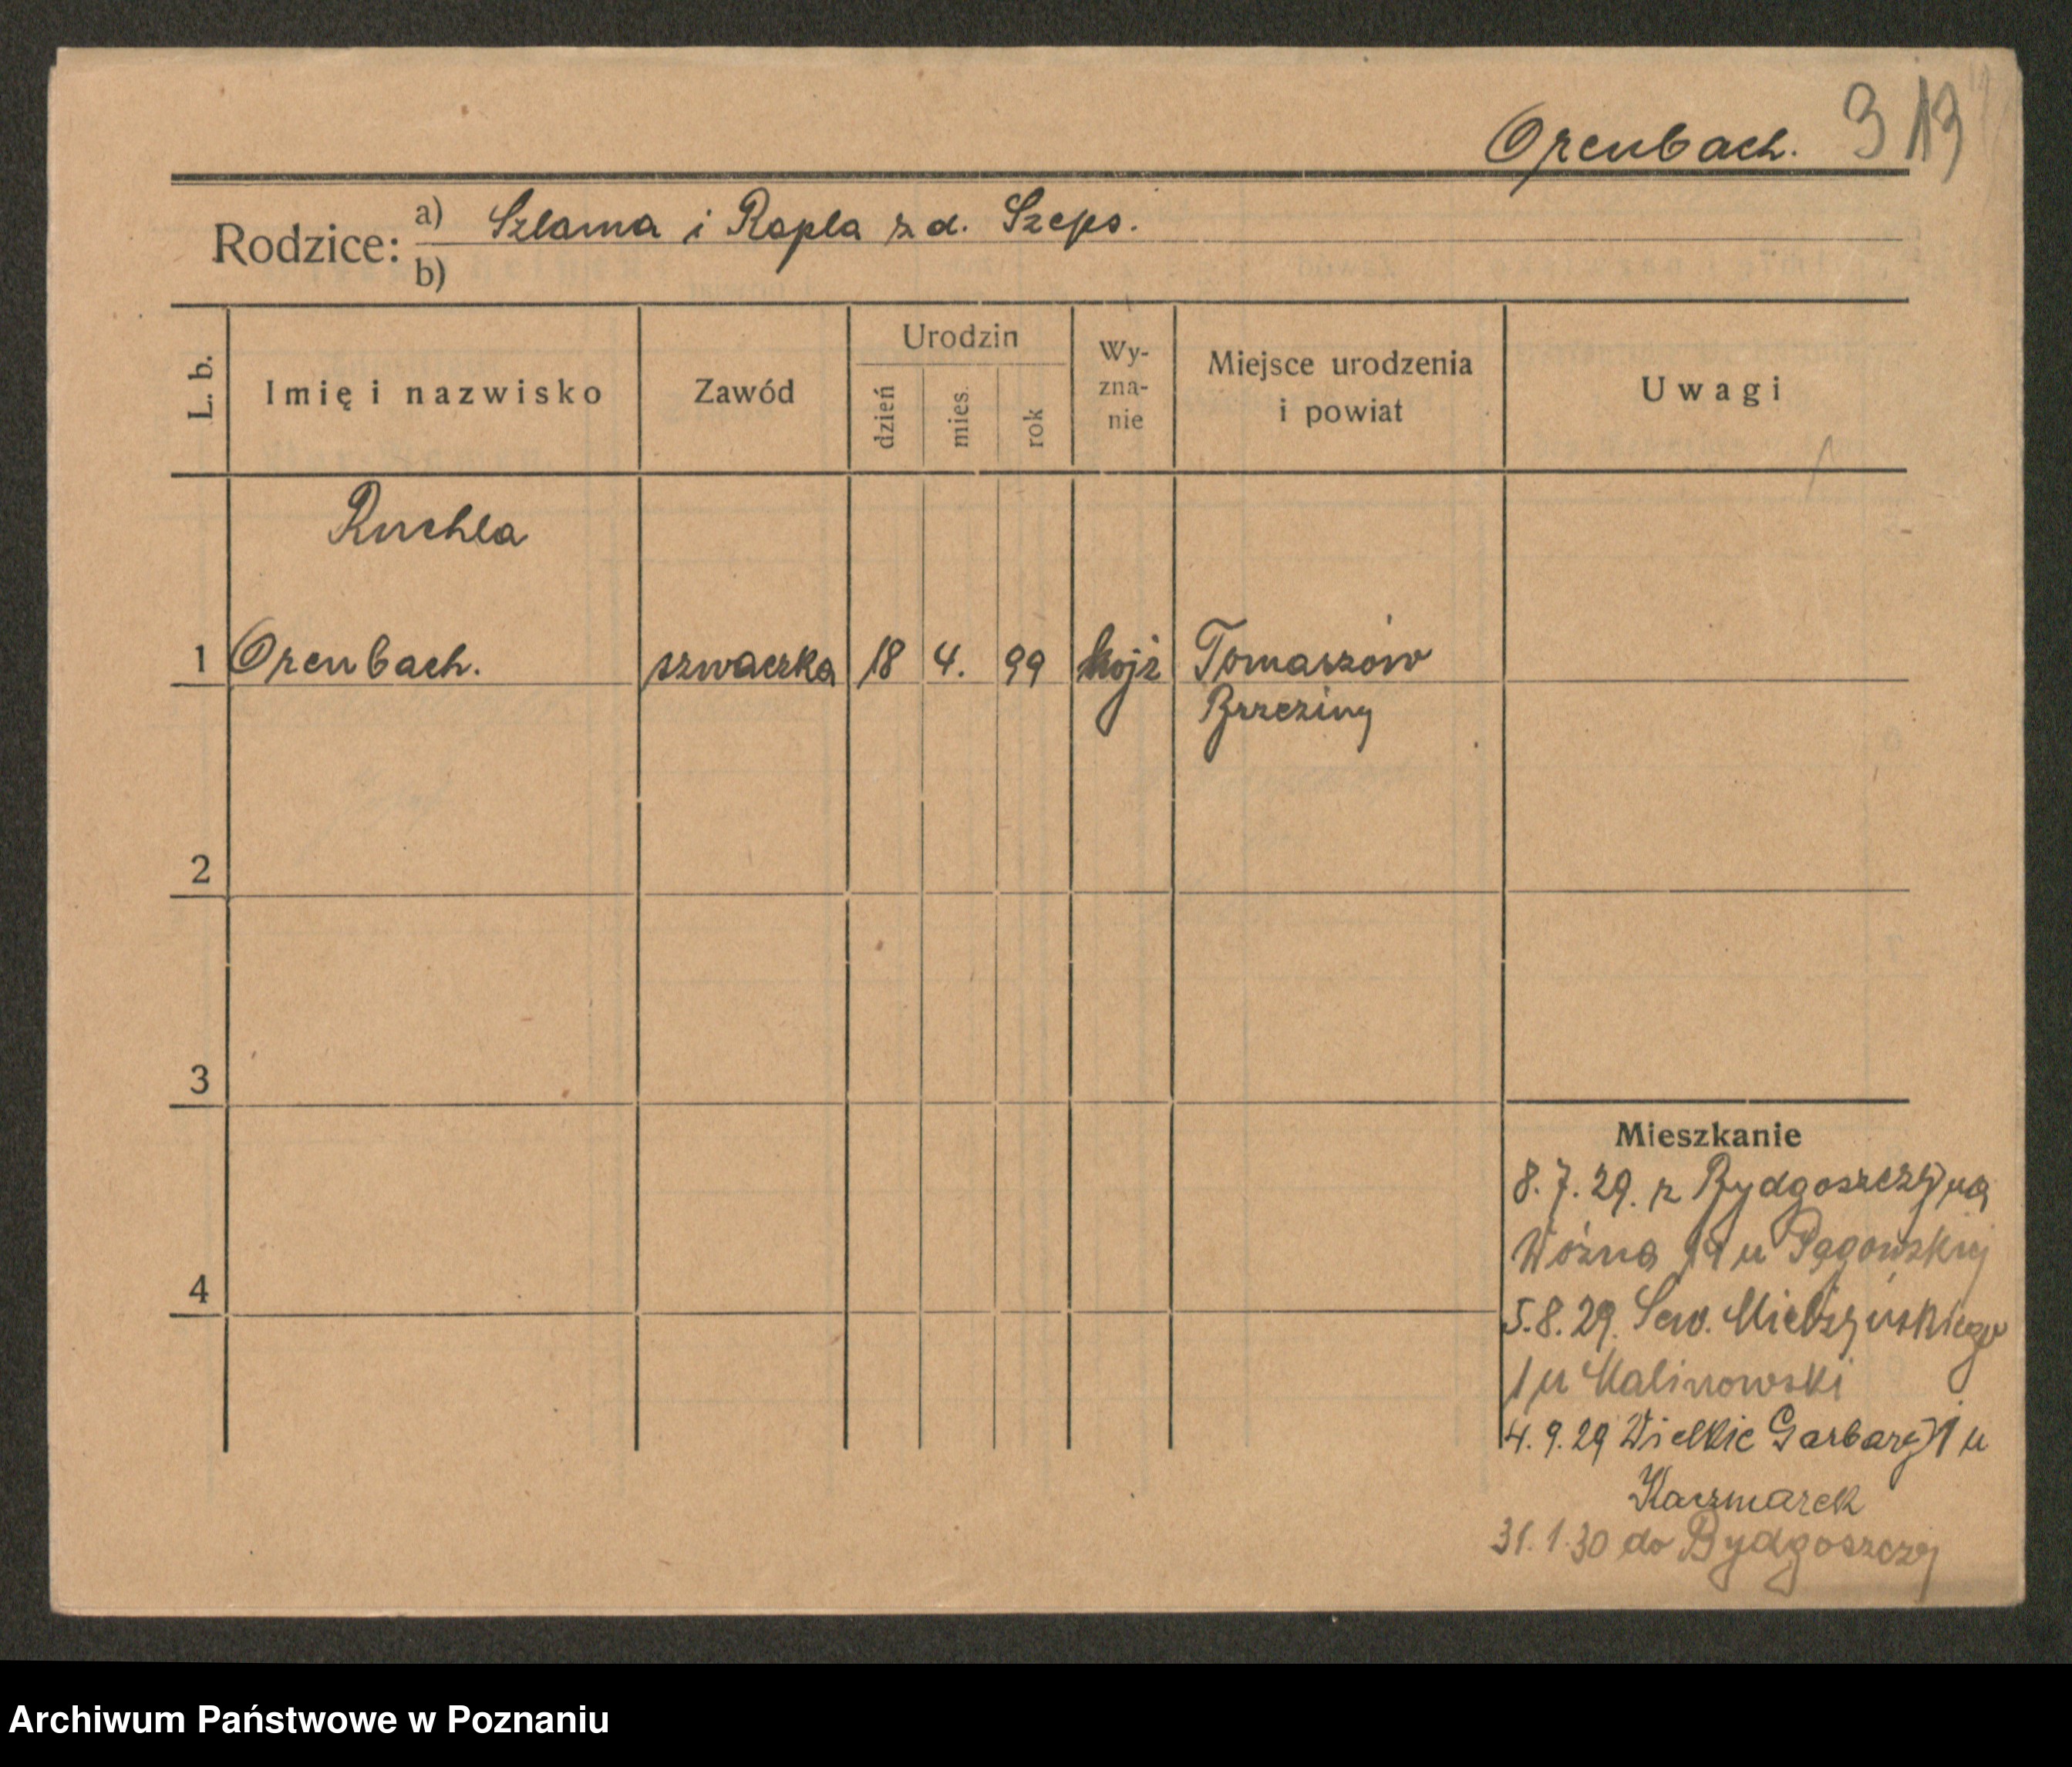 Orenbach. 313
Rodzice: a) Szlama i Rapla z d. Szeps.
b)
L. b. Imię i nazwisko Zawód Urodzin dzień mies. rok Wy-zna-nie Miejsce urodzenia i powiat Uwagi
Ruchla
1 Orenbach. szwaczka 18 4. 99 mojż Tomaszów
Brzeziny
2
3
Mieszkanie
8. 7. 29. z Bydgoszczy na
Woźna u Pągowskiej
4
5. 8. 29. Sew. Mielżyńskiego
1 u Malinowski
4. 9. 29 Wielkie Garbary 1 u
Kaczmarek
31. 1. 30 do Bydgoszczy
Archiwum Państwowe w Poznaniu